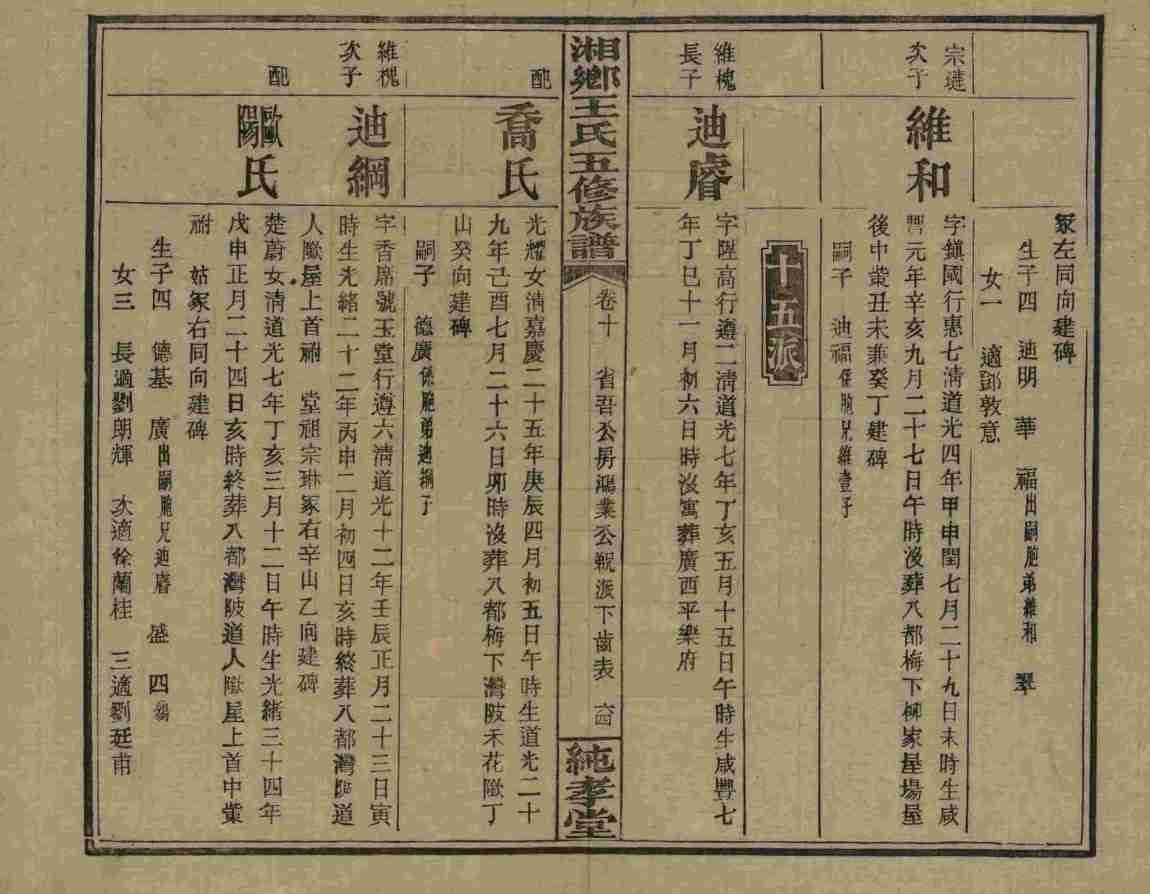 冢左同向建碑
生子四 迪明 華 福出嗣胞弟維和 翠
女一 適鄧敦意
宗璉
次子
維和
字鎮國行惠七清道光四年甲申閏七月二十九日未時生咸
豐元年辛亥九月二十七日午時沒葬八都梅下柳家屋場屋
後中蓥丑未兼癸丁建碑
嗣子 迪福係胞兄維壹子
十五派
維槐
長子
迪睿
字陞高行遵二清道光七年丁亥五月十五日午時生咸豐七
年丁巳十一月初六日時沒寓葬廣西平樂府
湘鄉王氏五修族譜
卷十 省吾公房鴻業公 派下齒表 六四
純孝堂
配
喬氏
光耀女清嘉慶二十五年庚辰四月初五日午時生道光二十
九年己酉七月二十六日卯時沒葬八都梅下灣陂禾花歐丁
山癸向建碑
嗣子 德廣係胞弟迪綱子
維槐
次子
迪綱
字香席號玉堂行遵六清道光十二年壬辰正月二十三日寅
時生光緒二十二年丙申二月初四日亥時終葬八都灣陂道
人歐屋上首祔 堂祖宗琳冢右辛山乙向建碑
配
歐陽氏
楚蔚女清道光七年丁亥三月十二日午時生光緒三十四年
戊申正月二十四日亥時終葬八都灣陂道人歐屋上首中蓥
祔 姑冢右同向建碑
生子四 德基 廣出嗣胞兄迪睿 盛 四殤
女三 長適劉朗輝 次適徐蘭桂 三適劉廷甫